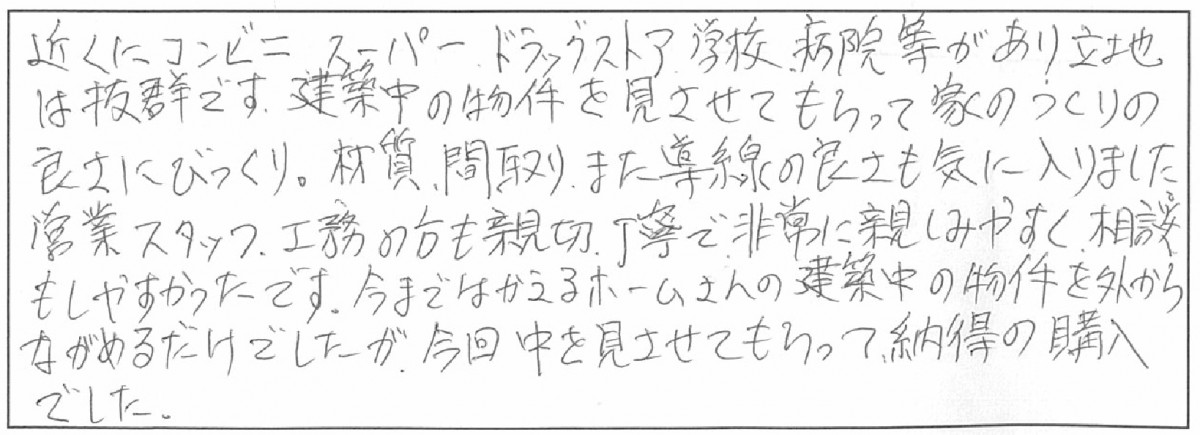 近くにコンビニ、スーパー、ドラッグストア、学校、病院等があり立地
は抜群です。建築中の物件を見させてもらって家のつくりの
良さにびっくり。材質、間取り、また導線の良さも気に入りました。
営業スタッフ、工務の方も親切、丁寧で、非常に親しみやすく、相談
もしやすかったです。今まではかえるホームさんの建築中の物件を外から
ながめるだけでしたが、今回中を見させてもらって、納得の購入
でした。